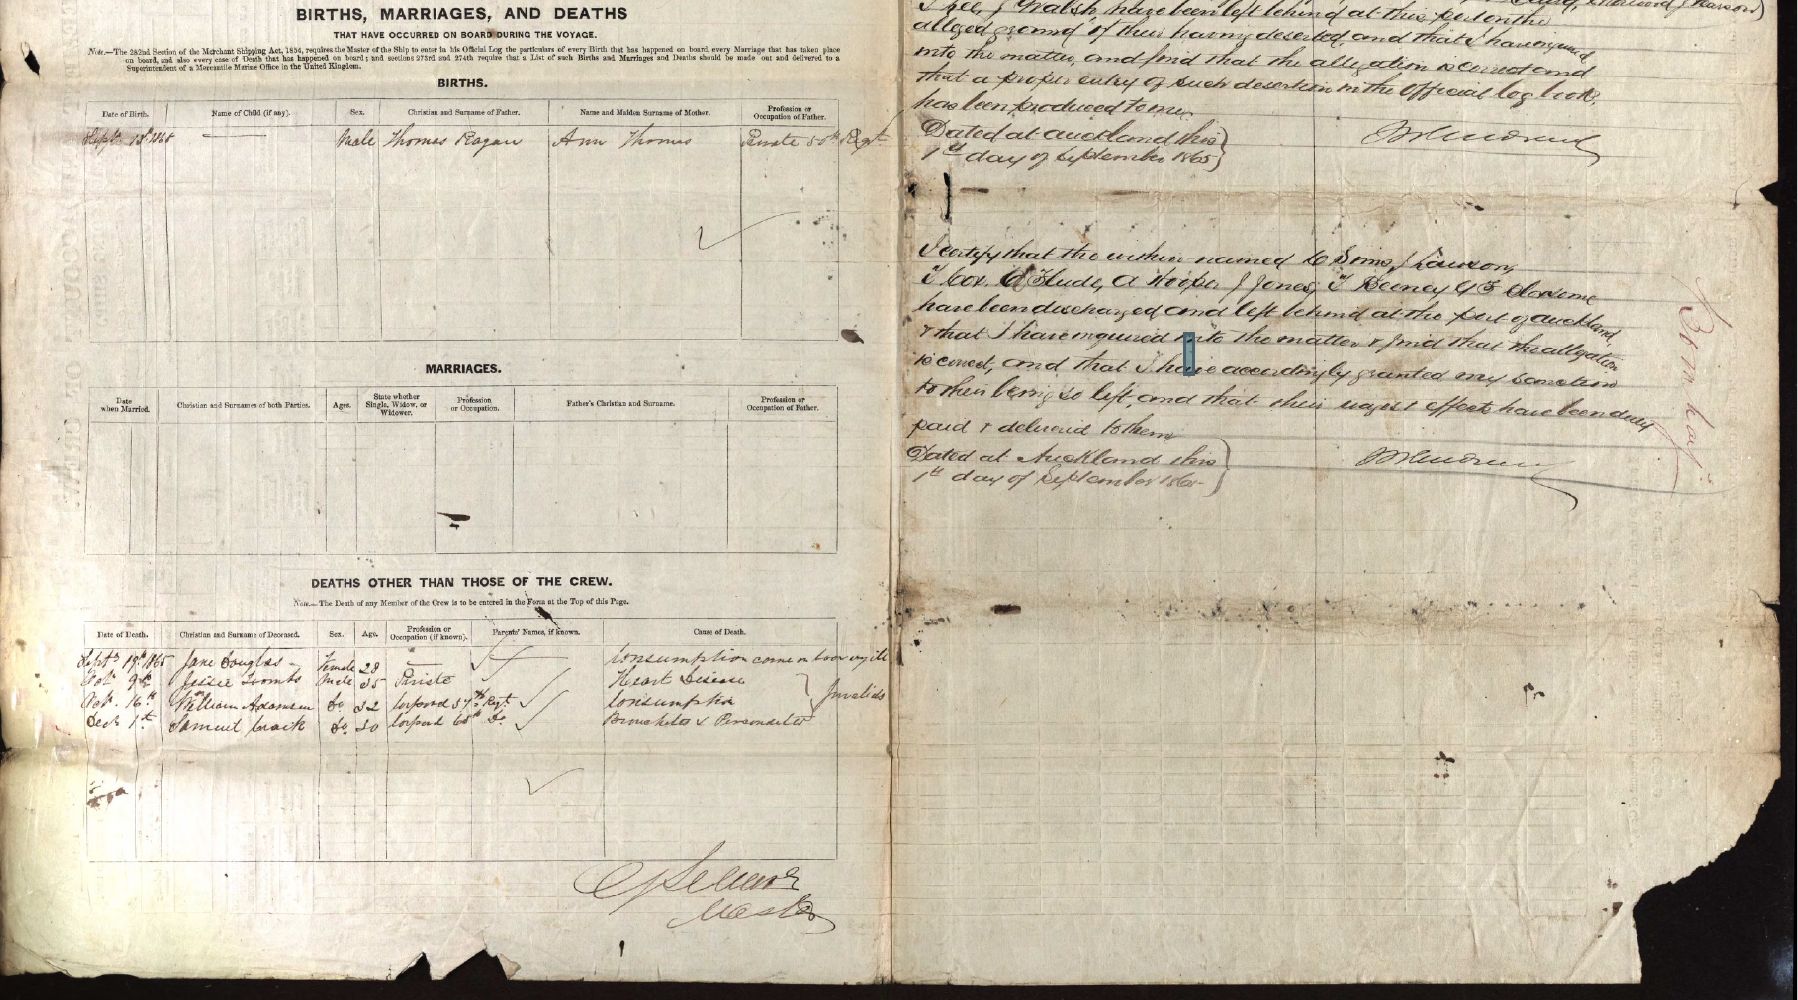 BIRTHS, MARRIAGES, AND DEATHS
THAT HAVE OCCURRED ON BOARD DURING THE VOYAGE.
Note.—The 282nd Section of the Merchant Shipping Act, 1854, requires the Master of the Ship to enter in his Official Log the particulars of every Birth that has happened on board, every Marriage that has taken place
on board, and also every case of Death that has happened on board; and sections 273rd and 274th require that a List of such Births and Marriages and Deaths should be made out and delivered to a
Superintendent of a Mercantile Marine Office in the United Kingdom.
BIRTHS.
Date of Birth. Name of Child (if any). Sex. Christian and Surname of Father. Name and Maiden Surname of Mother. Profession or Occupation of Father.
Septr 13th 1865 Male Thomas Ragan Ann Thomas Private 50th Regt
MARRIAGES.
Date when Married. Christian and Surnames of both Parties. Ages. State whether Single, Widow, or Widower. Profession or Occupation. Father's Christian and Surname. Profession or Occupation of Father.
DEATHS OTHER THAN THOSE OF THE CREW.
Note.—The Death of any Member of the Crew is to be entered in the Form at the Top of this Page.
Date of Death. Christian and Surname of Deceased. Sex. Age. Profession or Occupation (if known). Parents' Names, if known. Cause of Death.
Septr 19th 1865 Jane Douglas Female 28 Consumption came on board very ill
9th Jessie Male 35 Heart Disease
16th William Adamson Do 32 Corporal 57th Regt Consumption Invalids
Decr 1st Samuel Do 30 Corporal 68th Do Bronchitis &
Master
J Walsh have been left behind at this port on the
alleged ground of their having deserted, and that I have inquired
into the matter, and find that the allegation is correct and
that a proper entry of such desertion in the Official log book,
has been produced to me
Dated at Auckland this
1st day of September 1865
I certify that the within named C Sims, J Lawson,
T Cox, A Hooper J Jones, T
have been discharged and left behind at the port of Auckland,
& that I have inquired into the matter & find that the allegation
is correct, and that I have accordingly granted my sanction
to their being so left, and that their wages & effects have been duly
paid & delivered to them
Dated at Auckland this
1st day of September 1865